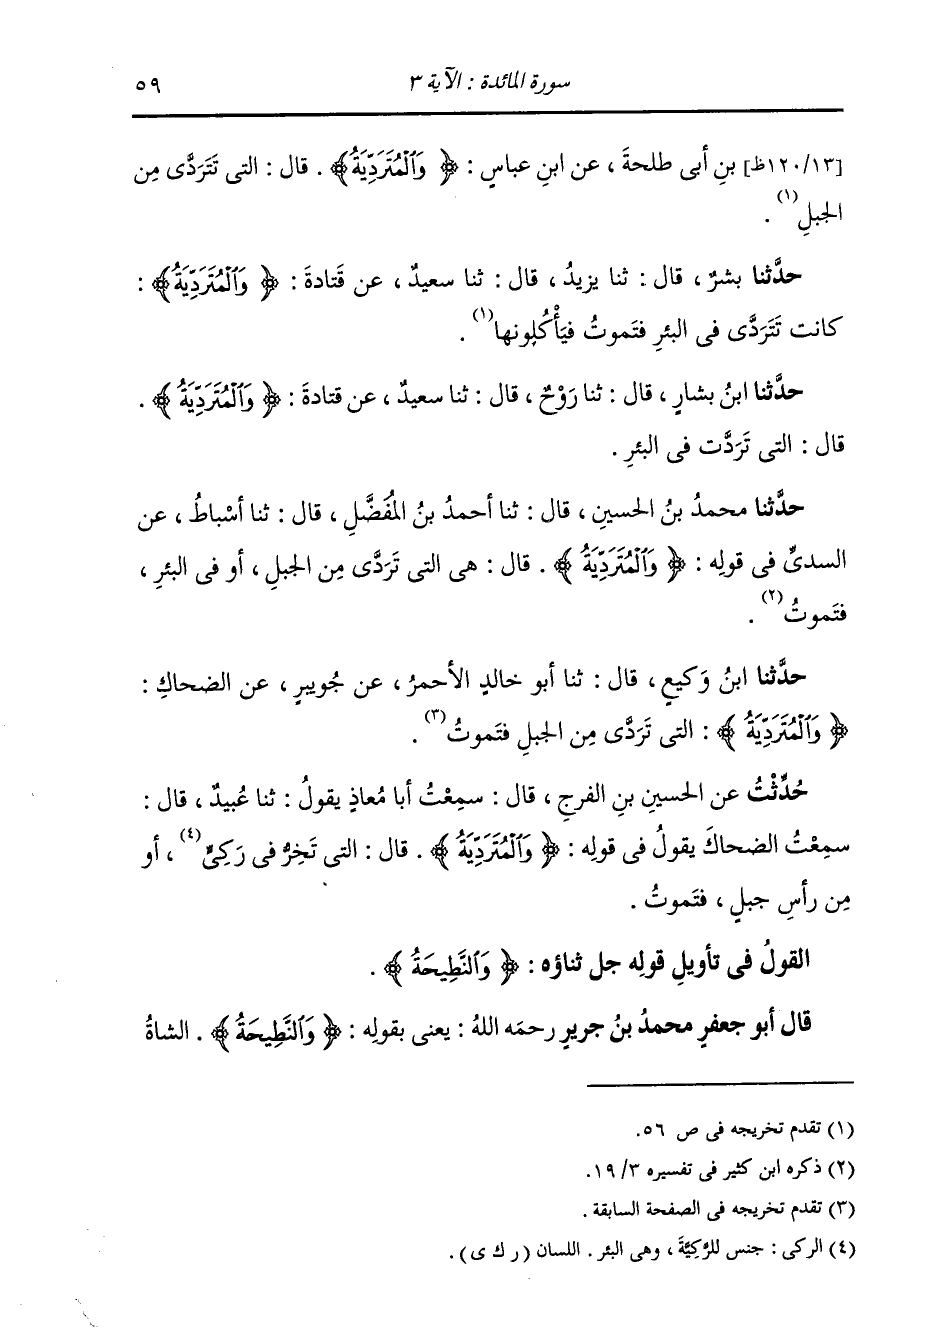 سورة المائدة : الآية ٣ ٥٩
[١٢٠/١٣ظ] بنِ أبى طلحةَ ، عن ابنِ عباسٍ : ﴿ وَٱلْمُتَرَدِّيَةُ ﴾ . قال : التى تَتَرَدَّى مِن
الجبلِ(١) .
حدَّثنا بشرٌ ، قال : ثنا يزيدُ ، قال : ثنا سعيدٌ ، عن قَتادةَ : ﴿ وَٱلْمُتَرَدِّيَةُ ﴾ :
كانت تَتَرَدَّى فى البئرِ فتَموتُ فيَأْكُلونها(١) .
حدَّثنا ابنُ بشارٍ ، قال : ثنا رَوْحٌ ، قال : ثنا سعيدٌ ، عن قتادةَ : ﴿ وَٱلْمُتَرَدِّيَةُ ﴾ .
قال : التى تَرَدَّت فى البئرِ .
حدَّثنا محمدُ بنُ الحسينِ ، قال : ثنا أحمدُ بنُ المُفَضَّلِ ، قال : ثنا أسْباطُ ، عن
السدىِّ فى قولِه : ﴿ وَٱلْمُتَرَدِّيَةُ ﴾ . قال : هى التى تَرَدَّى مِن الجبلِ ، أو فى البئرِ ،
فتَموتُ(٢) .
حدَّثنا ابنُ وَكيعٍ ، قال : ثنا أبو خالدٍ الأحمرُ ، عن جُويبرٍ ، عن الضحاكِ :
﴿ وَٱلْمُتَرَدِّيَةُ ﴾ : التى تَرَدَّى مِن الجبلِ فتَموتُ(٣) .
حُدِّثْتُ عن الحسينِ بنِ الفرجِ ، قال : سمِعْتُ أبا مُعاذٍ يقولُ : ثنا عُبيدٌ ، قال :
سمِعْتُ الضحاكَ يقولُ فى قولِه : ﴿ وَٱلْمُتَرَدِّيَةُ ﴾ . قال : التى تَخِرُّ فى رَكِىٍّ(٤) ، أو
مِن رأسِ جبلٍ ، فتَموتُ .
القولُ فى تأويلِ قولِه جل ثناؤه : ﴿ وَٱلنَّطِيحَةُ ﴾ .
قال أبو جعفرٍ محمدُ بنُ جريرٍ رحمَه اللهُ : يعنى بقولِه : ﴿ وَٱلنَّطِيحَةُ ﴾ . الشاةُ
(١) تقدم تخريجه فى ص ٥٦.
(٢) ذكره ابن كثير فى تفسيره ١٩/٣.
(٣) تقدم تخريجه فى الصفحة السابقة .
(٤) الركى : جنس للرَّكِيَّةَ ، وهى البئر . اللسان ( ر ك ى ) .